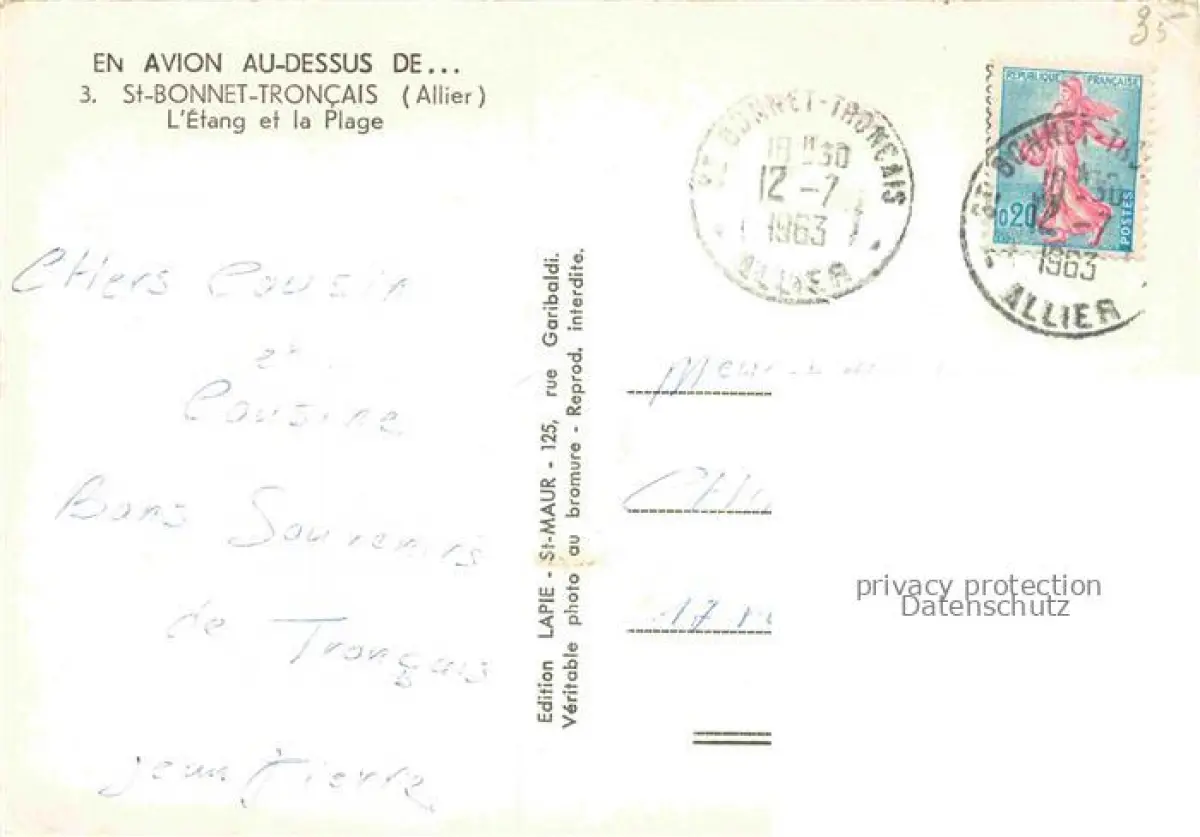 EN AVION AU-DESSUS DE...
3. St-BONNET-TRONÇAIS (Allier)
L'Étang et la Plage
CHers Cousin
et
Cousine
Bons Souvenirs
de Tronçais
jean Pierre
Edition LAPIE - St-MAUR - 125, rue Garibaldi.
Véritable photo au bromure - Reprod. interdite.
35
REPUBLIQUE FRANÇAISE
0,20
POSTES
ST BONNET-TRONCAIS
18 H30
12 -7
1963
ALLIER
ST BONNET-TRO
18 H30
12 -7
1963
ALLIER
17 r
privacy protection
Datenschutz